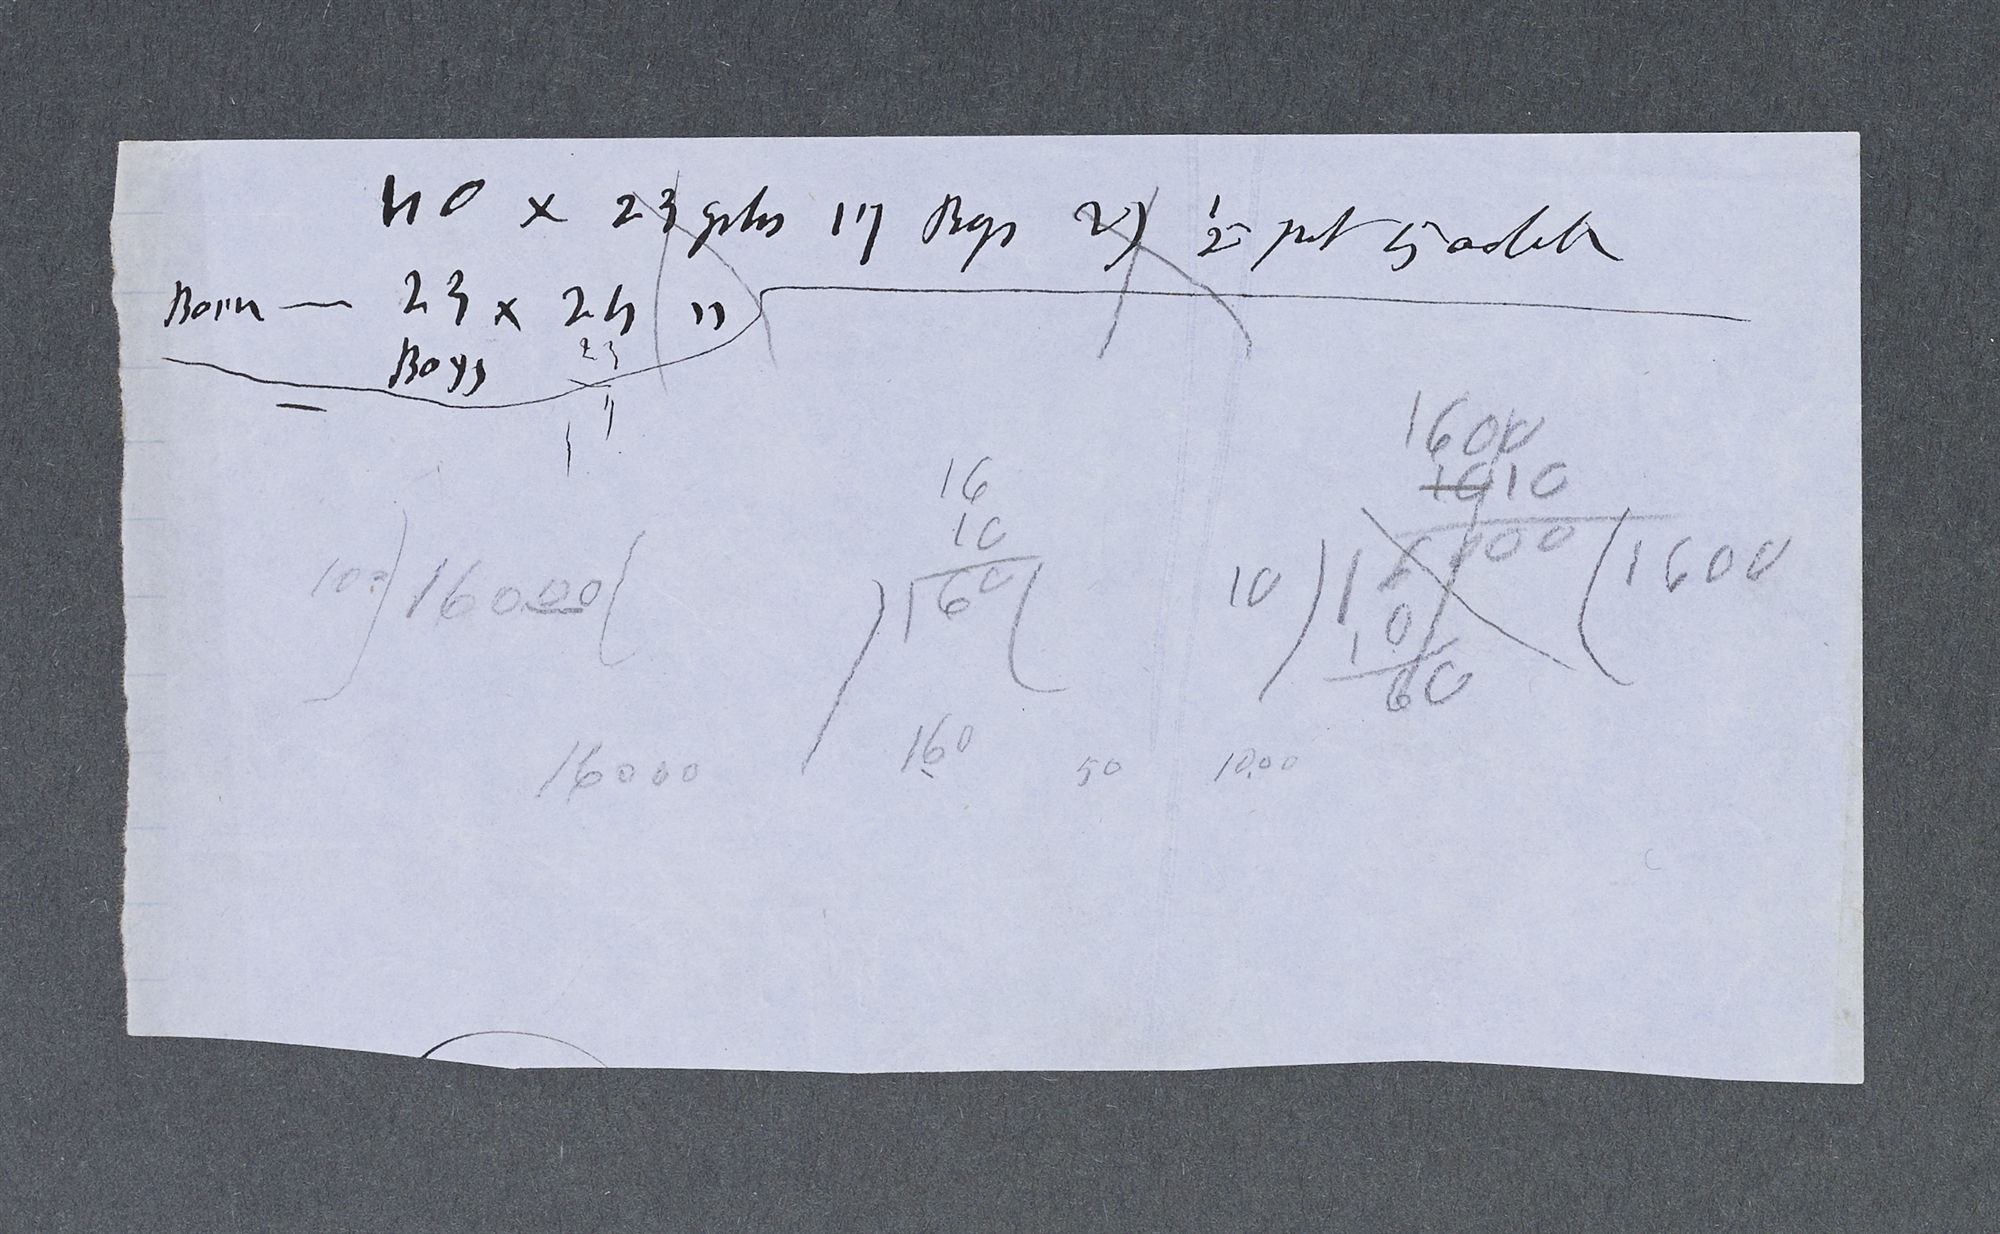 40 x 23 girls 17 Boys 27 1/2 pct 5 adlt
Born — 23 x 24 "
Boys 23
16
10
1600
1010
100) 16000 (
) 160 (
10) 16000 ( 1600
10
60
16000 160 50 1000